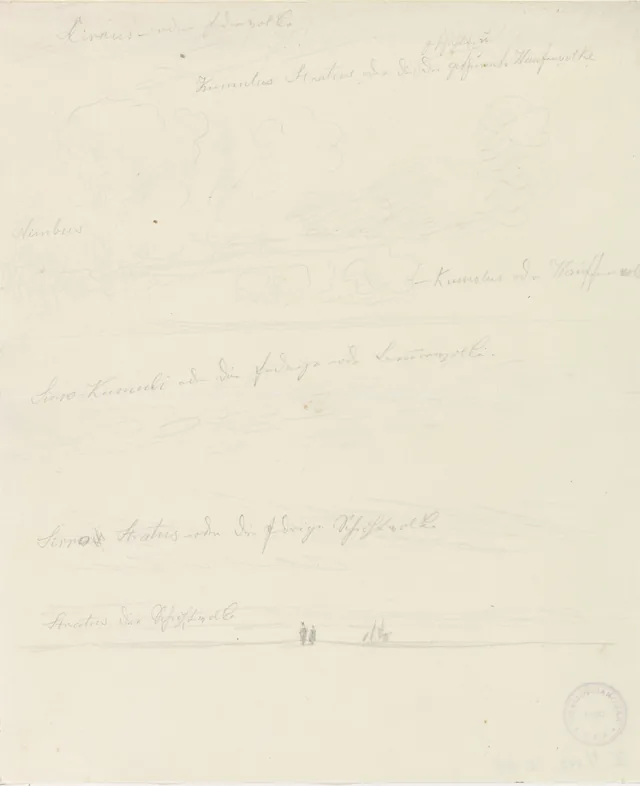 Cirrus oder Federwolke
Kumulus Stratus oder die gethürmte Haufenwolke
Nimbus
Kumulus oder Hauffenwol
Sirro Kumuli oder die fedrige oder Lämmerwolke.
Sirro Stratus oder die fedrige Schichtwolke
Stratus die Schichtwolke